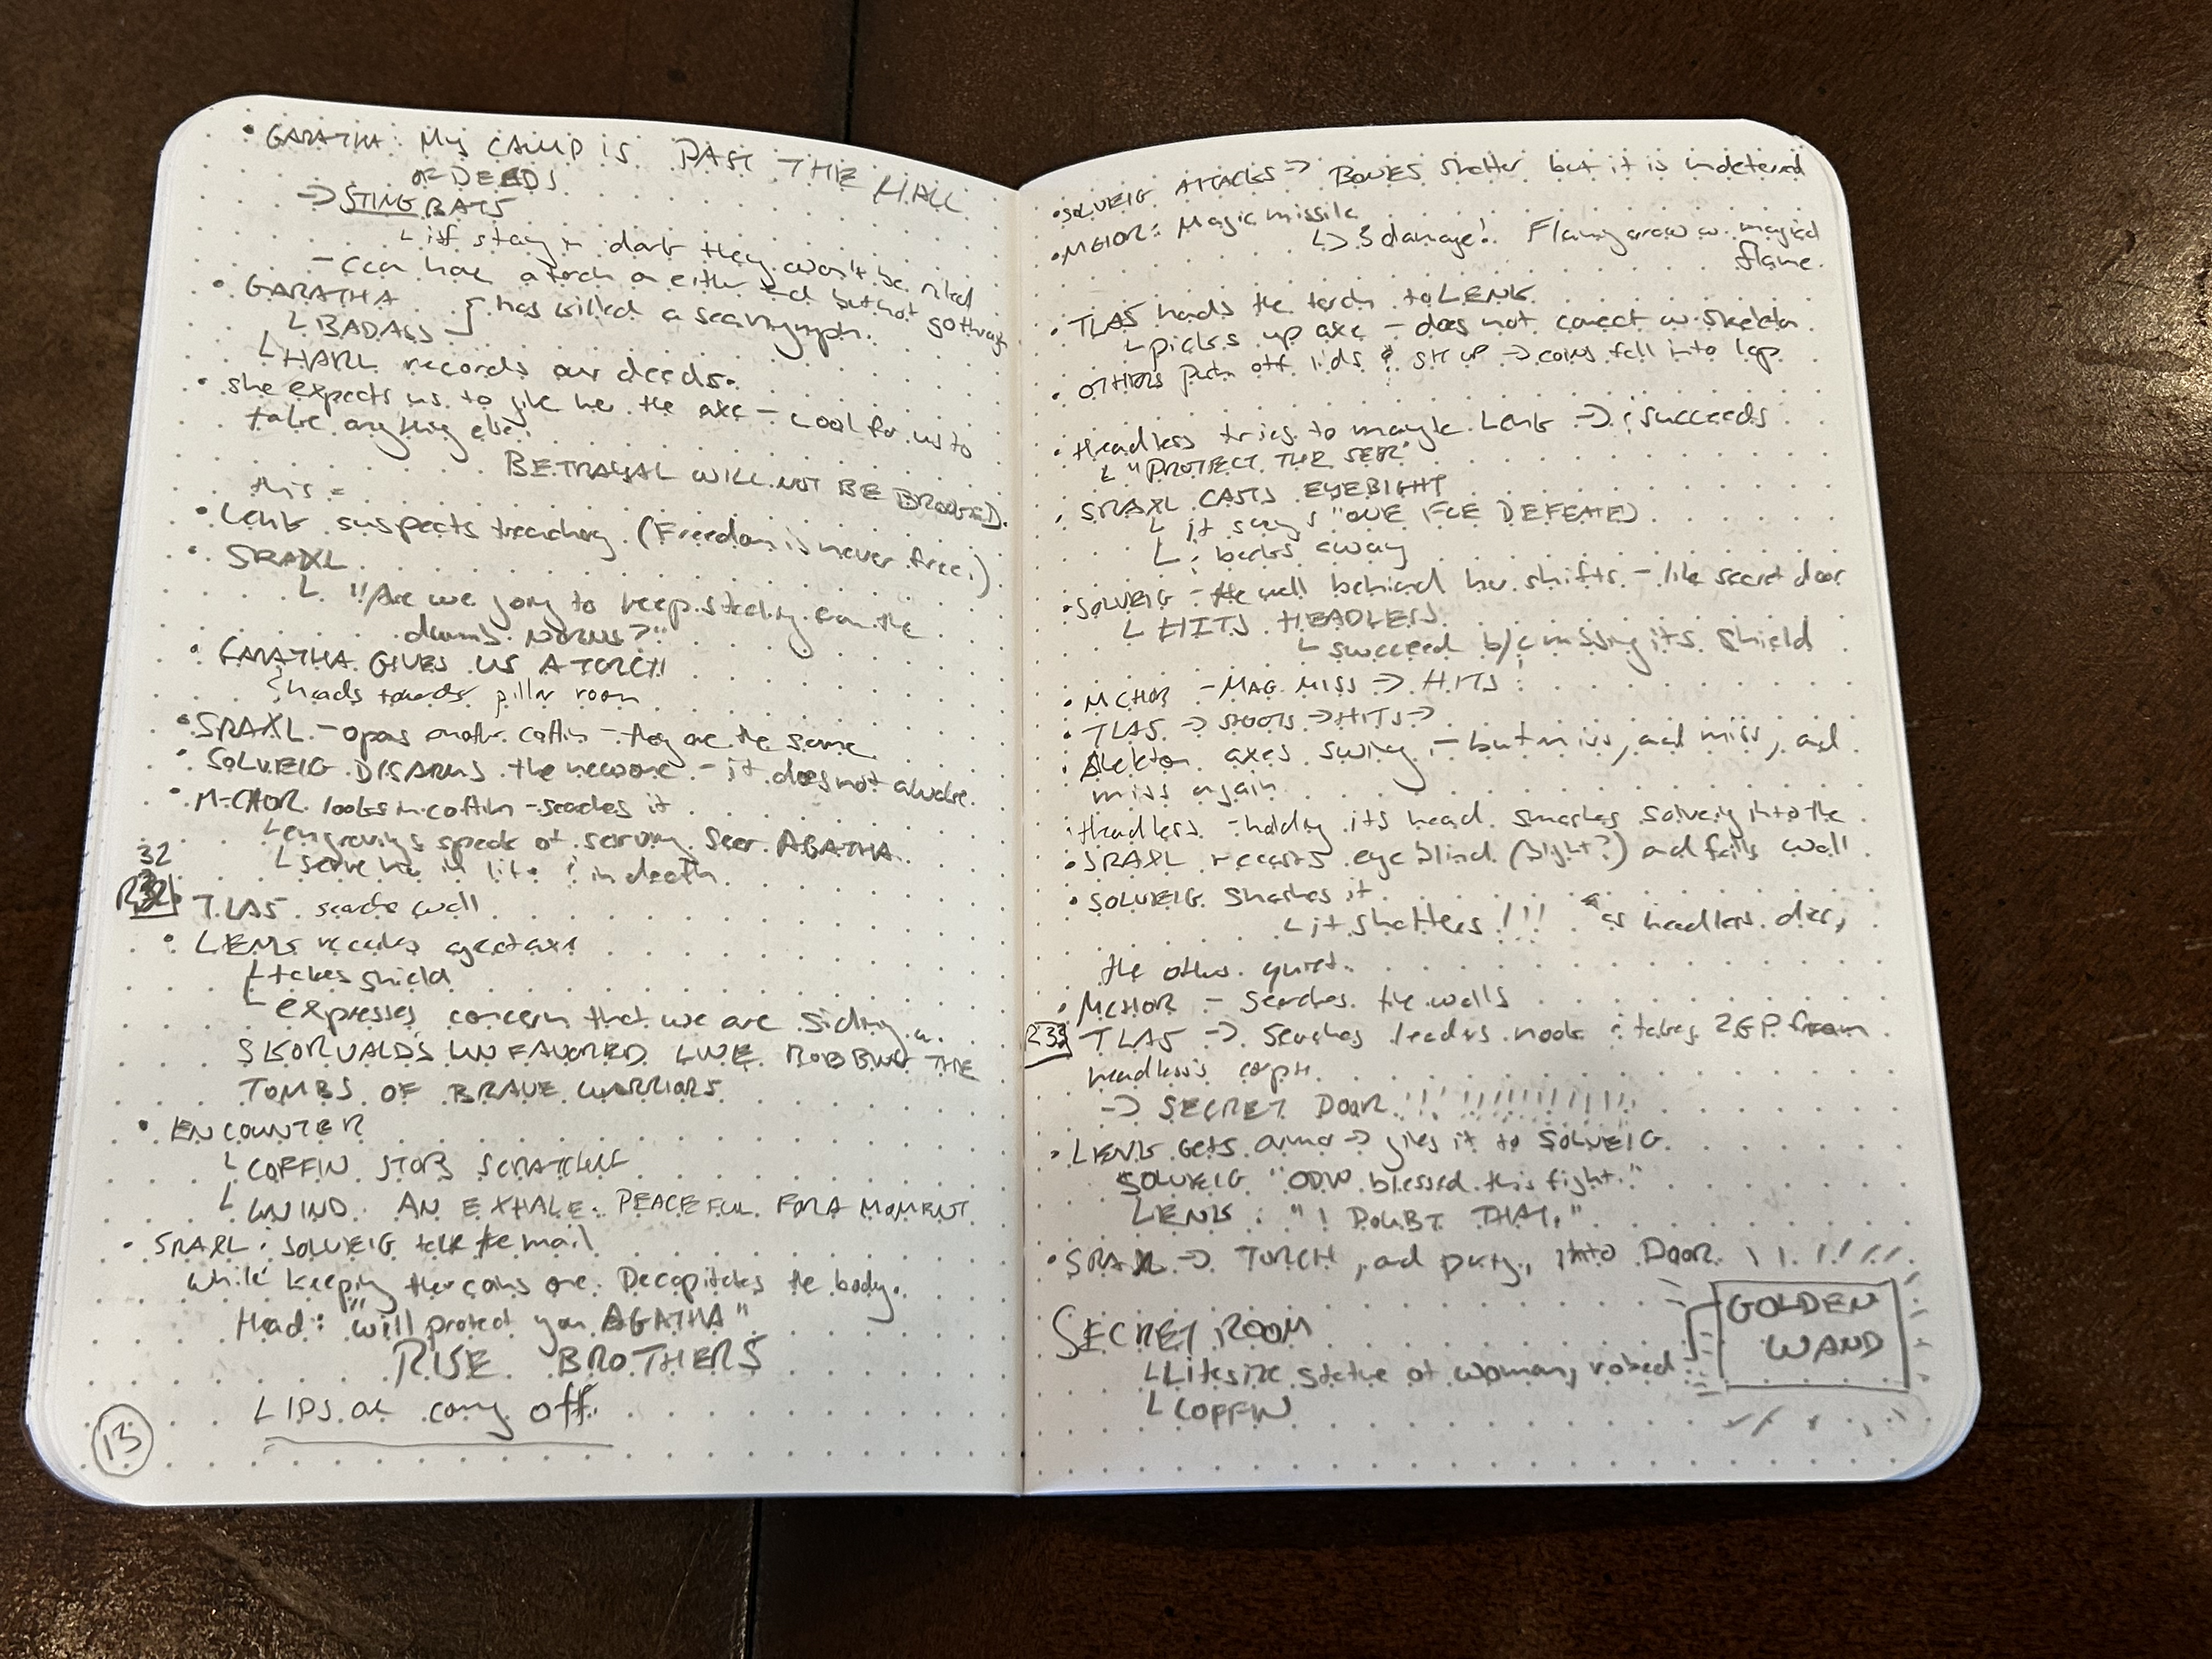 • GARATHA: My CAMP IS PAST THE HALL
OF DEEDS
→ STINGBATS
└ if stay in dark they won't be riled
- can have a torch on either end but not go through
• GARATHA
└ BADASS } has killed a
└ HARL records our deeds.
• she expects us to give her the axe – cool for us to
take anything else.
BETRAYAL WILL NOT BE BROOKED.
this =
• Lenk suspects treachery. (Freedom is never free.)
• SRAXL
└ "Are we going to keep stealing from the
dumb NORNS?"
• GARATHA GIVES US A TORCH
heads towards pillar room
• SRAXL – opens another coffin – they are the same
• SOLVEIG DISARMS the new one – it does not awake.
• M-CHOR looks in coffin – searches it
└ engravings speak of serving Seer AGATHA
└ serve her in life & in death.
32
R32
TLAS searches wall
• LENK receives greataxe
└ takes shield
└ expresses concern that we are siding w.
SKORVALD'S UNFAVORED LIKE ROBBING THE
TOMBS OF BRAVE WARRIORS
• ENCOUNTER
└ COFFIN STOPS SCRATCHING
└ WIND. AN EXHALE. PEACEFUL FOR A MOMENT
• SRAXL & SOLVEIG take the mail
while keeping the coins on. Decapitates the body.
Head: "will protect you AGATHA"
RISE BROTHERS
LIPS are coming off.
13
• SOLVEIG ATTACKS → BONES shatter but it is undeterred
• MCHOR: Magic missile
↳ 3 damage! Flaming arrow w. magical
flame.
• TLAS hands the torch to LENK
└ picks up axe – does not connect w. skeleton.
• OTHERS push off lids & sit up → coins fall into lap
• Headless tries to mangle Lenk → & succeeds
└ "PROTECT THE SEER"
• SRAXL CASTS EYEBIGHT
└ it says "ONE FOE DEFEATED
└ & backs away
• SOLVEIG – the wall behind her shifts – like secret door
└ HITS HEADLESS
└ succeed b/c missing its shield
• MCHOR – MAG. MISS → HITS!
• TLAS → SHOOTS → HITS →
• Skeleton axes swing – but miss, and miss, and
miss again
• Headless – holding its head smashes Solveig into the
wall
• SRAXL recasts eyeblind (bight?) and fails
• SOLVEIG smashes it
└ it shatters!!! as headless dies,
the others quiet.
• MCHOR – Searches the walls
R33
TLAS → Searches leaders nook & takes 2GP from
headless's corpse.
→ SECRET DOOR!!!!!!!!!!!!!
• LENK Gets armor → gives it to SOLVEIG
SOLVEIG "ODIN blessed this fight."
LENK: "I DOUBT THAT."
• SRAXL → TORCH, and party, into DOOR !!!!!!!
SECRET ROOM
└ Lifesize statue of woman, robed
└ COFFIN
GOLDEN
WAND